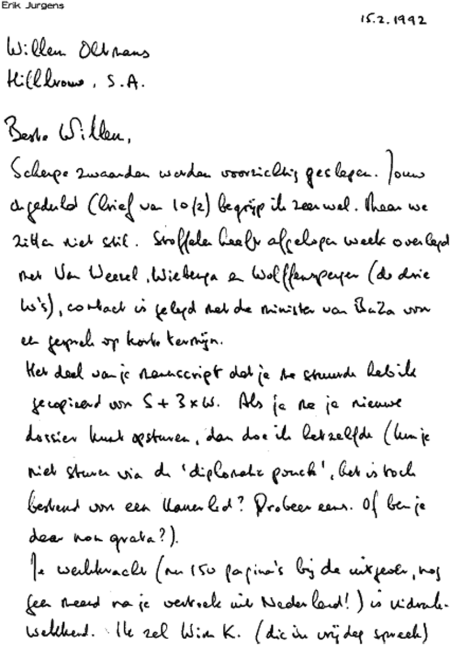 Erik Jurgens
15.2.1992
Willem Oltmans
Hillbrow, S.A.
Beste Willem,
Scherpe zwaarden worden voorzichtig geslepen. Jouw
ongeduld (brief van 10/2) begrijp ik zeer wel. Maar we
zitten niet stil. Stoffelen heeft afgelopen week overlegd
met Van Weezel, Wiebenga en Wolffensperger (de drie
W's), contact is gelegd met de minister van BuZa voor
een gesprek op korte termijn.
Het deel van je manuscript dat je me stuurde heb ik
gecopieerd voor S + 3xW. Als je me je nieuwe
dossier kunt opsturen, dan doe ik hetzelfde (kun je
niet sturen via de 'diplomatic pouch', het is toch
bestemd voor een Kamerlid? Probeer eens. Of ben je
daar non grata?).
Je werkkracht (nu 150 pagina's bij de uitgever, nog
geen maand na je vertrek uit Nederland!) is indruk-
wekkend. Ik zal Wim K. (die ik vrijdag spreek)